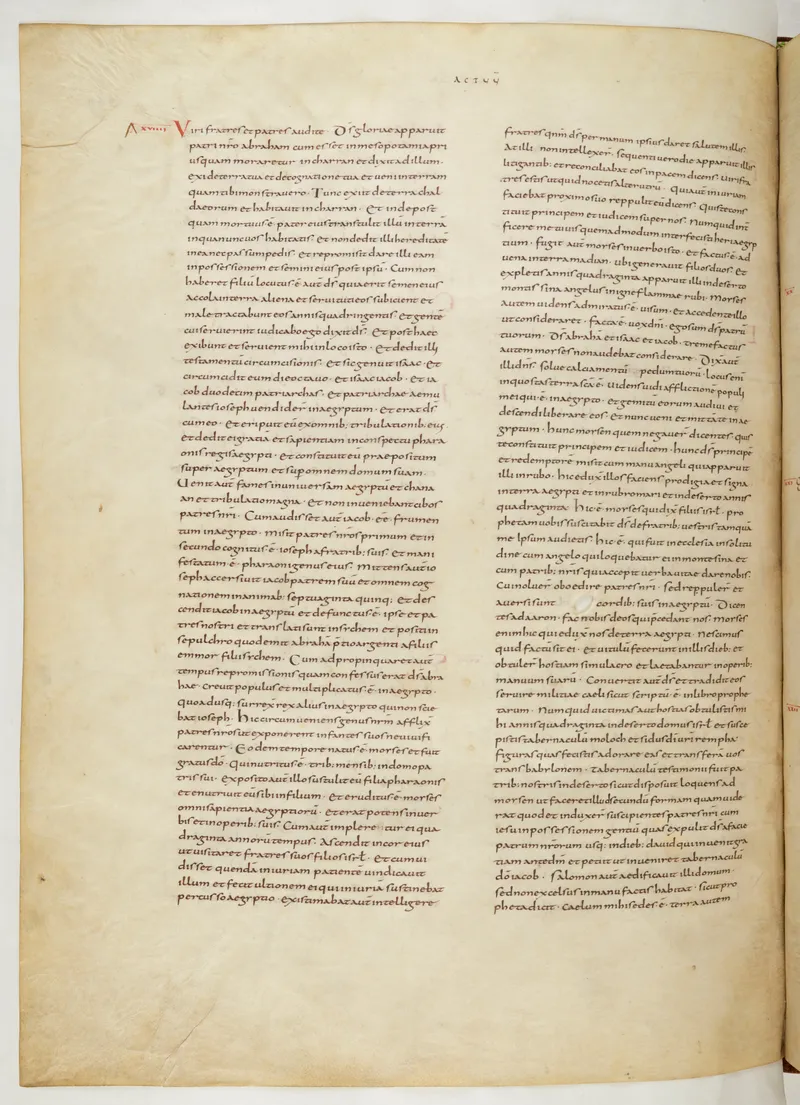 ACTUŪ
A XVIIII Viri fratres et patres audite · D̄s gloriae apparuit
patri nr̄o abraham cum esset in mesopotamia pri
usquam moraretur in charran et dixit ad illum ·
exi de terra tua et de cognatione tua et ueni in terram
quam tibi monstrauero · Tunc exiit de terra chal
daeorum et habitauit in charran · Et inde post
quam mortuus ē · pater eius transtulit illū in terrā
in qua nunc uos habitatis · Et non dedit illi hereditatē
in ea nec passum pedis · Et repromisit dare illi eam
in possessionem et semini eius post ipsū · Cum non
haberet filiū locutus ē aut̄ d̄s quia erit semen eius
accola in terra aliena et seruituti eos subicient et
male tractabunt eos annis quadringentis · Et gentē
cui seruierint iudicabo ego dixit d̄s · Et post haec
exibunt et seruient mihi in loco isto · Et dedit illi
testamentū circumcisionis · et sic genuit isaac · Et
circumcidit eum die octauo · et isaac iacob · Et ia
cob duodecim patriarchas · Et patriarchae aemu
lantes ioseph uendider̄ in aegyptum · Et erat d̄s
cum eo · Et eripuit eū ex omnib; tribulationib; eius
et dedit ei gratiā et sapientiam in conspectu phara
onis regis aegypti · et constituit eū praepositum
super aegyptum et sup omnem domum suam ·
Uenit aut̄ fames in uniuersam aegyptū et chana
an et tribulatio magna · et non inueniebant cibos
patres nr̄i · Cum audisset aut̄ iacob · eē frumen
tum in aegypto · misit patres nr̄os primum et in
secundo cognitus ē · ioseph a fratrib; suis · Et mani
festatum ē · pharaoni genus eius · Mittens aut̄ io
seph accersiuit iacob patrem suū et omnem cog
nationem in animab; septuaginta quinq; et des
cendit iacob in aegyptū et defunctus ē · ipse et pa
tres nostri et translati sunt in sychem et positi in
sepulchro quod emit abrahā p̄tio argenti a filiis
emmor filii sychem · Cum adpropinquaret aut̄
tempus repromissionis quam confessus erat d̄s abra
hae · Creuit populus et multiplicatus ē · in aegypto ·
quoadusq; surrex rex alius in aegypto qui non scie
bat ioseph · Hic circumueniens genus nr̄m afflix̄
patres nr̄os ut exponerent infantes suos ne uiuifi
carentur · Eodem tempore natus ē moyses et fuit
gratus dō · Qui nutritus ē · trib; mensib; in domo pa
tris sui · exposito aut̄ illo sustulit eū filia pharaonis
et enutriuit eū sibi in filium · Et eruditus ē moyses
omni sapientia aegyptiorū · et erat potens in uer
bis et in operib; suis · Cum aut̄ implere tur ei qua
draginta annorū tempus · Ascendit in cor eius
ut uisitaret fratres suos filios isrl · et cum ui
disset quendā iniuriam patientē uindicauit
illum et fecit ultionem ei qui iniuriā sustinebat
percusso aegyptio · existimabat aut̄ intelligere
fratres qnm d̄s per manum ipsius daret salutem illis ·
At illi non intellexer̄ · sequenti uero die apparuit illis
litigantib; et reconciliabat eos in pacem dicens · Uiri fra
tres estis ut quid nocetis alterutrū · Qui aut̄ iniuriam
faciebat proximo suo reppulit eū dicens · Quis te cons
tituit principem et iudicem super nos · Numquid int̄
ficere me tu uis quemadmodum interfecisti heri aegyp
tium · fugit aut̄ moyses in uerbo isto · et factus ē · ad
uena in terra madian · ubi generauit filios duos · Et
expletis annis quadraginta apparuit illi in deserto
montis sina angelus in igne flammae rubi · Moyses
autem uidens admiratus ē · uisum · et accedente illo
ut consideraret · facta ē · uox dn̄i · ego sum d̄s patrū
tuorum · D̄s abraha et isaac et iacob · tremefactus
autem moyses non audebat considerare · Dixit aut̄
illi dn̄s · solue calciamentū pedum tuorū · locus enī
in quo stas terra sc̄a ē · uidens uidi afflictionē populi
mei qui ē · in aegypto · et gemitū eorum audiui et
descendi liberare eos · et nunc ueni et mittā te in ae
gyptum · hunc moysen quem negauer̄ dicentes quis
te constituit principem et iudicem · hunc d̄s principē
et redemptorē misit cum manu angeli qui apparuit
illi in rubo · hic edux̄ illos faciens prodigia et signa
in terra aegypti et in rubro mari et in deserto annis
quadraginta · hic ē · moyses qui dix̄ filiis isrl · pro
phetam uobis suscitabit d̄s de fratrib; uestris tamquā
me ipsum audietis · hic ē · qui fuit in ecclesia in solitu
dine cum angelo qui loquebatur ei in monte sina et
cum patrib; nr̄is qui accepit uerba uitae dare nobis ·
Cui noluer̄ oboedire patres nr̄i · sed reppuler̄ et
auersi sunt cordib; suis in aegyptū · Dicen
tes ad aaron · fac nobis deos qui p̄cedant nos · moyses
enim hic qui edux̄ nos de terra aegypti · nescimus
quid factū sit ei · et uitulū fecerunt in illis dieb; et
obtuler̄ hostiam simulacro et laetabantur in operib;
manuum suarū · Conuertit aut̄ d̄s et tradidit eos
seruire militiae caeli sicut scriptū ē · in libro prophe
tarum · Numquid uictimas aut hostias obtulistis mi
hi annis quadraginta in deserto domus isrl · et susce
pistis tabernaculū moloch et sidus di uiri rempha ·
figuras quas fecistis adorare eas et transferā uos
trans babylonem · tabernaculū testamonii fuit pa
trib; nostris in deserto sicut disposuit loquens ad
moysen ut faceret illud secundū formam quam uide
rat quod et induxer̄ suscipientes patres nr̄i cum
iesu in possessionem gentiū quas expulit d̄s a facie
patrum nr̄orum usq; in dieb; dauid qui inuenit gra
tiam ante dm̄ et petiit ut inueniret tabernaculū
dō iacob · salomon aut̄ aedificauit illi domum ·
sed non excelsus in manu factis habitat · sicut pro
pheta dicit · Caelum mihi sedes ē · terra autem